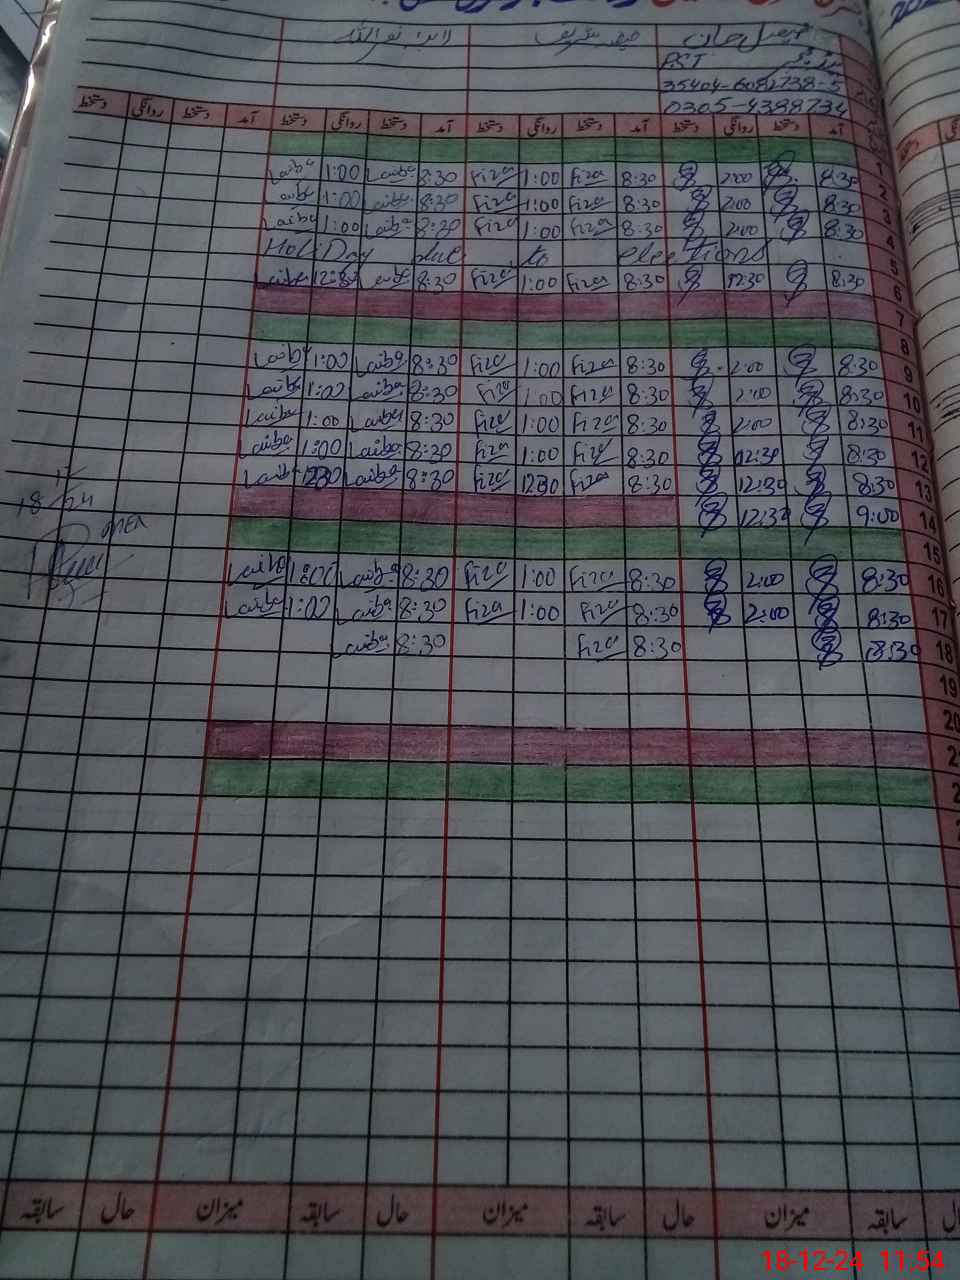 لائبہ نوراللہ فضہ شریف فیصل خان
PST
35404-6081738-5
0305-4388734
دستخط روانگی دستخط آمد دستخط روانگی دستخط آمد دستخط روانگی دستخط آمد دستخط روانگی دستخط آمد
1
Laiba 1:00 Laiba 8:30 Fiza 1:00 Fiza 8:30 2:00 8:30 2
Laiba 1:00 Laiba 8:30 Fiza 1:00 Fiza 8:30 2:00 8:30 3
Laiba 1:00 Laiba 8:30 Fiza 1:00 Fiza 8:30 2:00 8:30 4
HoliDay due to elections 5
Laiba 12:30 Laiba 8:30 Fiza 1:00 Fiza 8:30 12:30 8:30 6
7
8
Laiba 1:00 Laiba 8:30 Fiza 1:00 Fiza 8:30 2:00 8:30 9
Laiba 1:00 Laiba 8:30 Fiza 1:00 Fiza 8:30 2:00 8:30 10
Laiba 1:00 Laiba 8:30 Fiza 1:00 Fiza 8:30 2:00 8:30 11
Laiba 1:00 Laiba 8:30 Fiza 1:00 Fiza 8:30 12:30 8:30 12
Laiba 1230 Laiba 8:30 Fiza 1230 Fiza 8:30 12:30 8:30 13
12:30 9:00 14
15
Laiba 1:00 Laiba 8:30 Fiza 1:00 Fiza 8:30 2:00 8:30 16
Laiba 1:00 Laiba 8:30 Fiza 1:00 Fiza 8:30 2:00 8:30 17
Laiba 8:30 Fiza 8:30 8:30 18
19
20
18/24
سابقہ حال میزان سابقہ حال میزان سابقہ حال میزان سابقہ
18-12-24 11:54